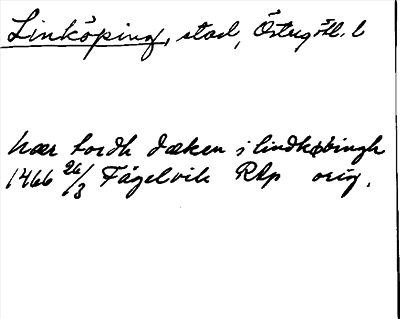 Linköping, stad, Östergötl. l
hær Lordh dæken j lindkøbingh
1466 26/3 Fågelvik RAp orig.